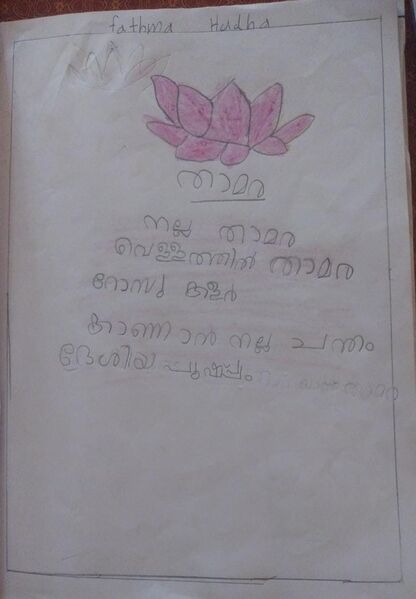 fathma Hudha
താമര
നല്ല താമര
വെള്ളത്തിൽ താമര
റോസു കളർ
കാണാൻ നല്ല ചന്തം
ദേശിയ പുഷ്പം